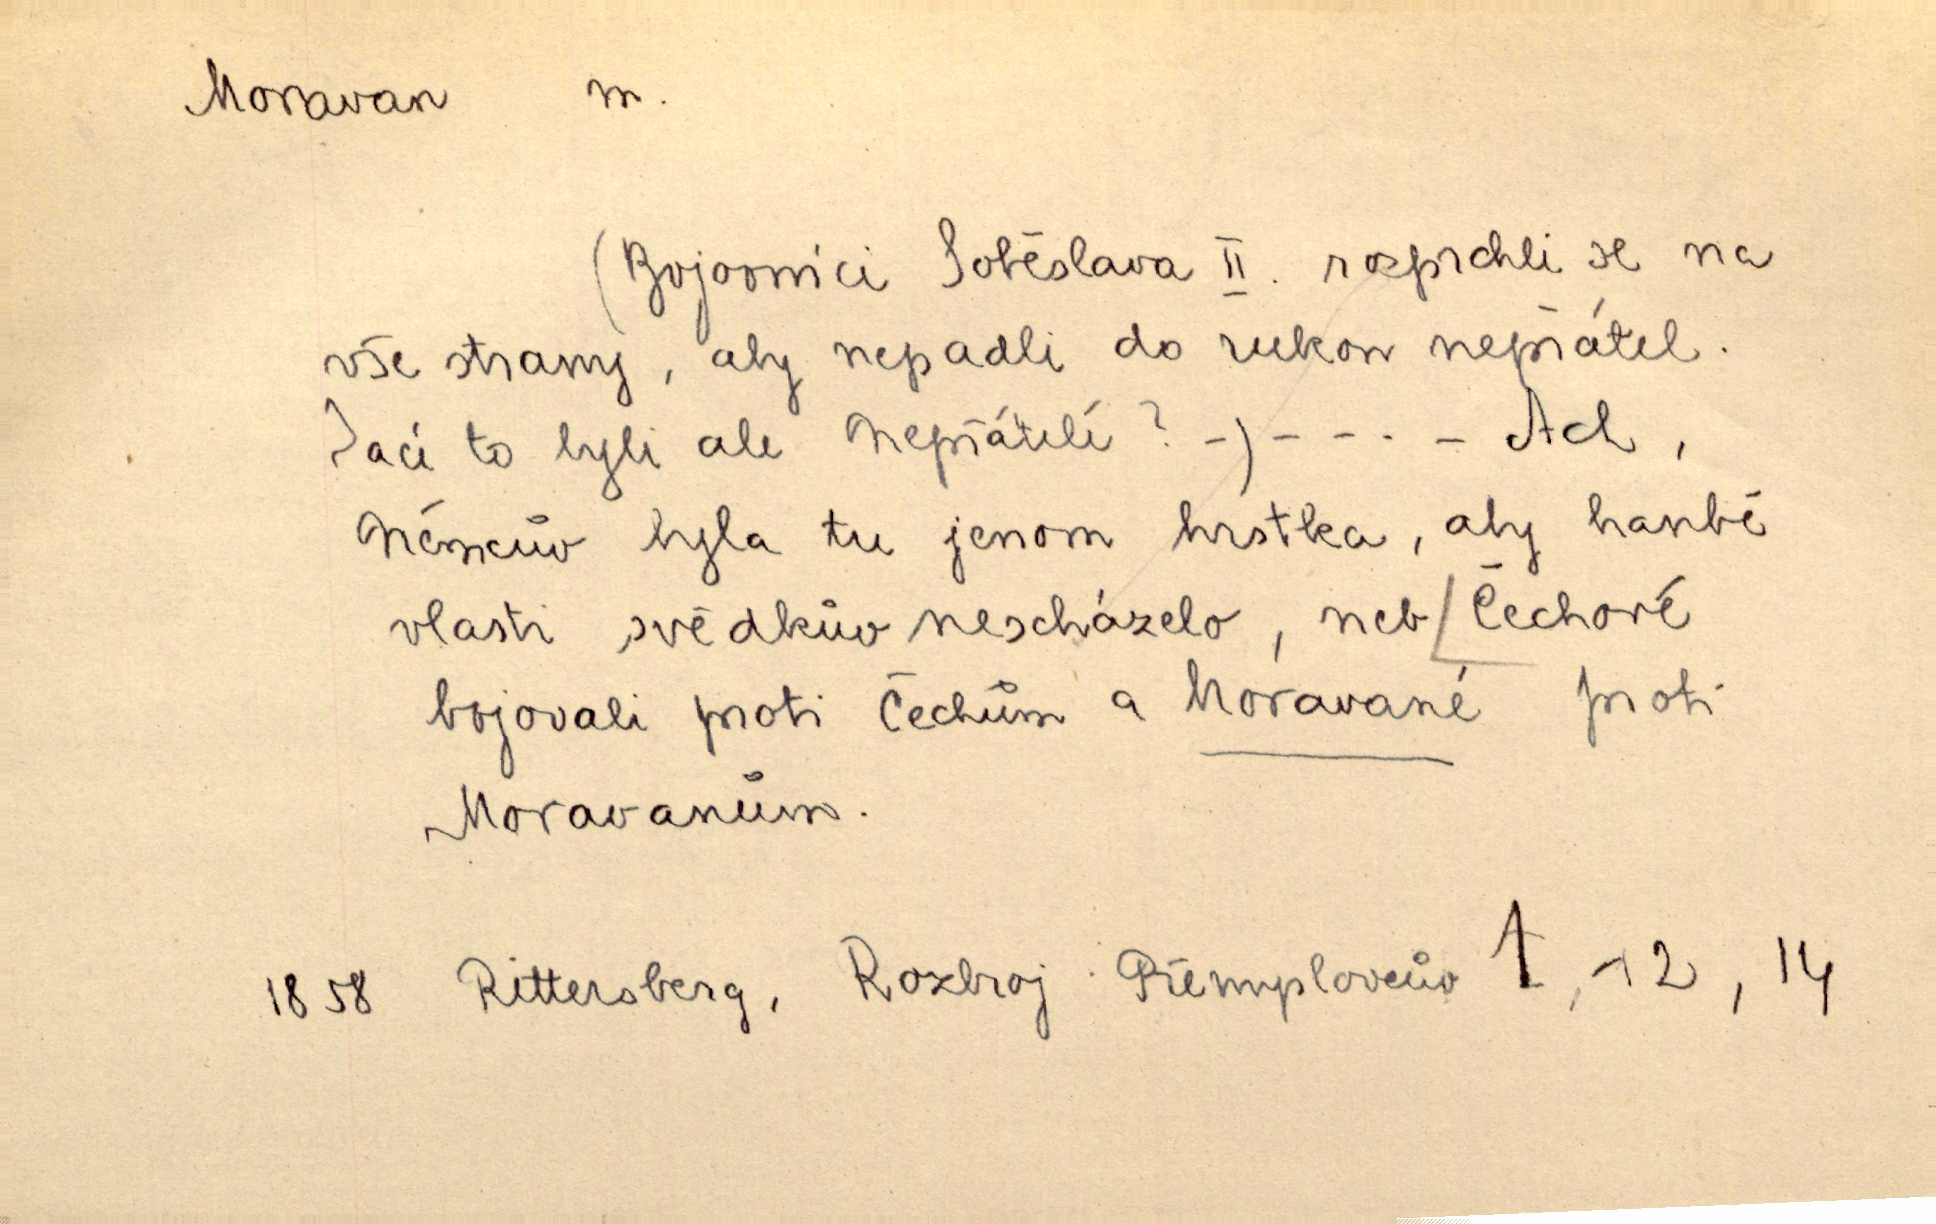 Moravan m.
(Bojovníci Soběslava II. rozprchli se na
vše strany, aby nepadli do rukou nepřátel.
Jací to byli ale Nepřátelé? -) - - - - Ach,
Němcův byla tu jenom hrstka, aby hanbě
vlasti svědkův nescházelo, neb Čechové
bojovali proti Čechům a Moravané proti
Moravanům.
1858 Rittersberg, Rozbroj Přemyslovcův 1, 12, 14